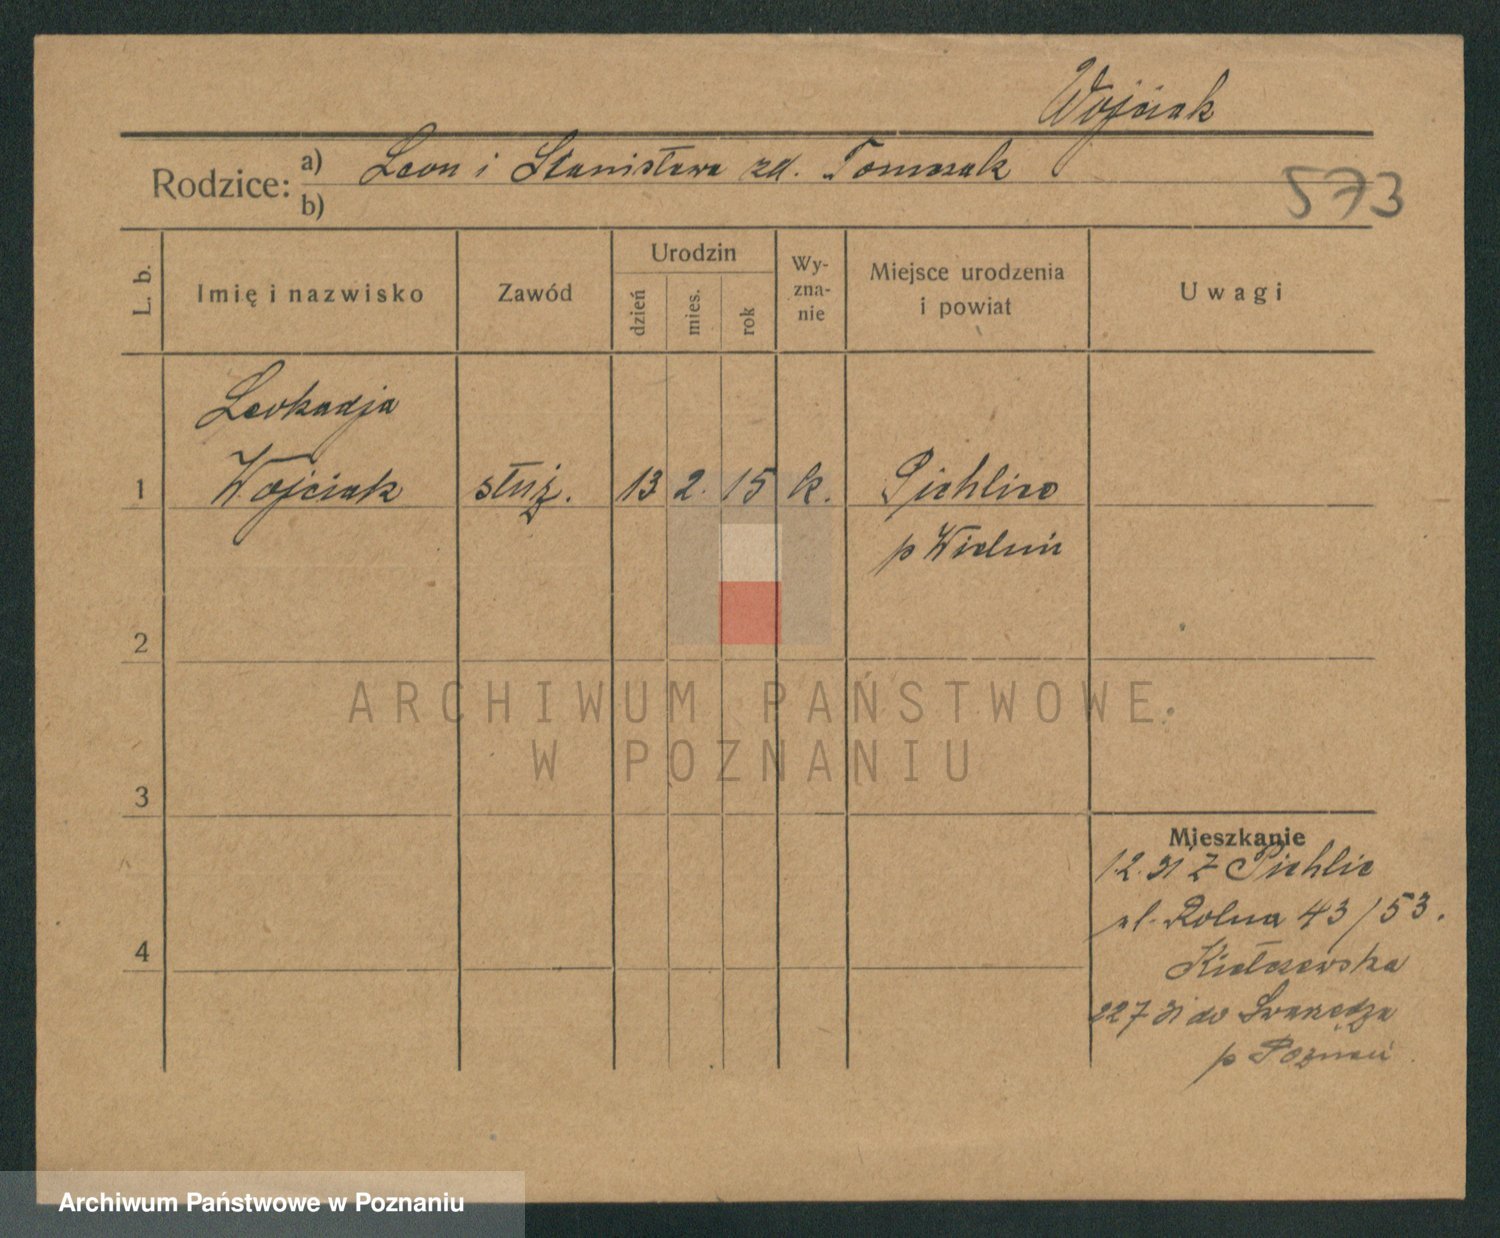 Wojciak
Rodzice: a) Leon i Stanisława zd. Tomczak
b)
573
L. b.
Imię i nazwisko
Zawód
Urodzin
dzień
mies.
rok
Wy-
zna-
nie
Miejsce urodzenia
i powiat
Uwagi
Leokadja
1 Wojciak służ. 13 2. 15 k. Pichlice
p Wieluń
2
ARCHIWUM PAŃSTWOWE
W POZNANIU
3
Mieszkanie
1.2. 31 z Pichlic
ul. Rolna 43/53.
Kiełczewska
4
22 7 31 do Swarzędza
p Poznań
Archiwum Państwowe w Poznaniu